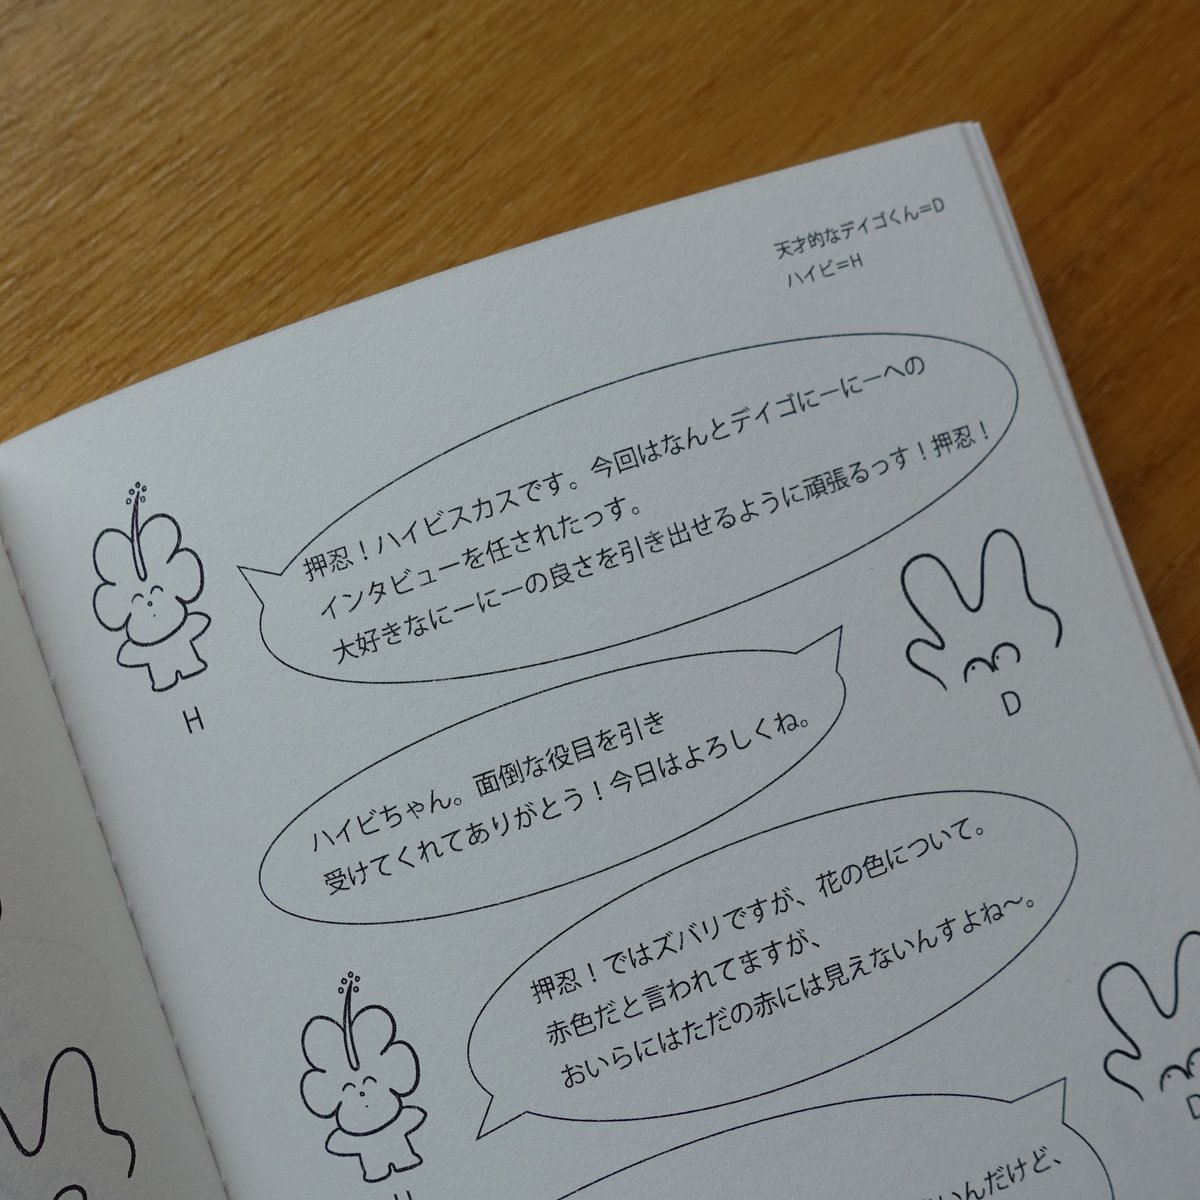 天才的なデイゴくん=D
ハイビ=H
押忍！ハイビスカスです。今回はなんとデイゴにーにーへの
インタビューを任されたっす。
大好きなにーにーの良さを引き出せるように頑張るっす！押忍！
H
D
ハイビちゃん。面倒な役目を引き
受けてくれてありがとう！今日はよろしくね。
押忍！ではズバリですが、花の色について。
赤色だと言われてますが、
おいらにはただの赤には見えないんすよね〜。
D
H
いんだけど、